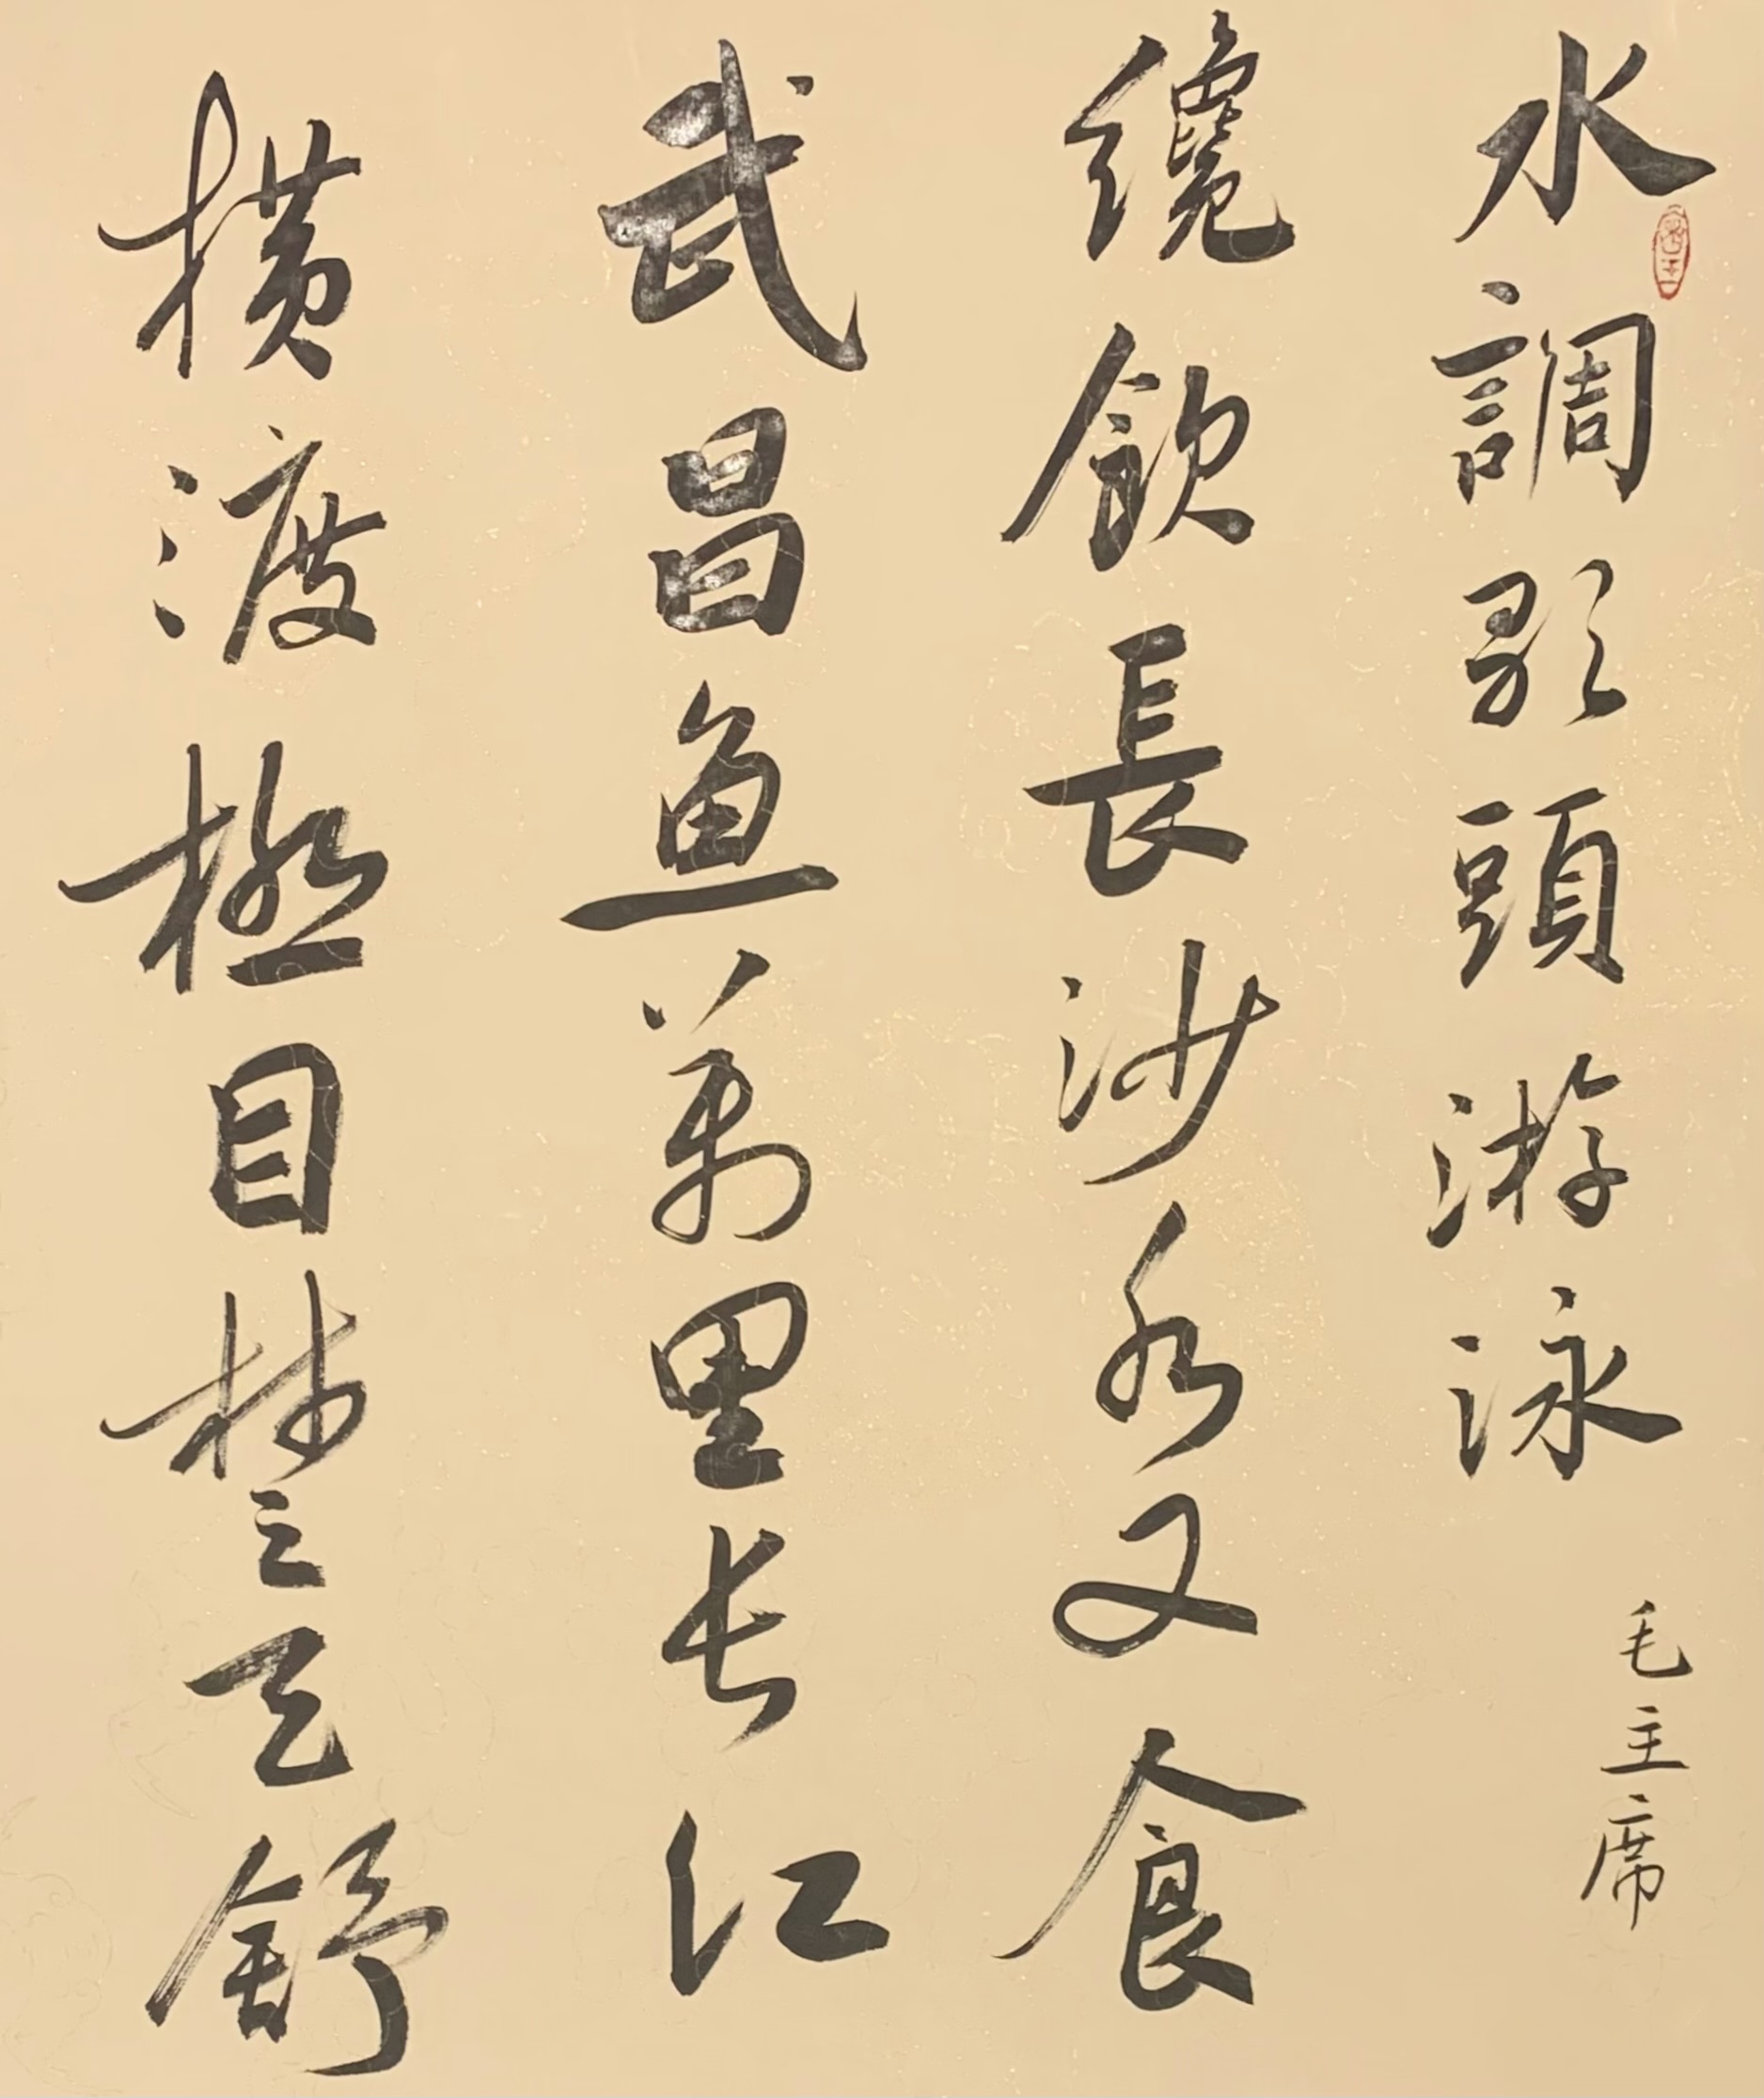 水調歌頭游泳
毛主席
纔飲長沙水又食
武昌鱼萬里长江
横渡極目楚天舒